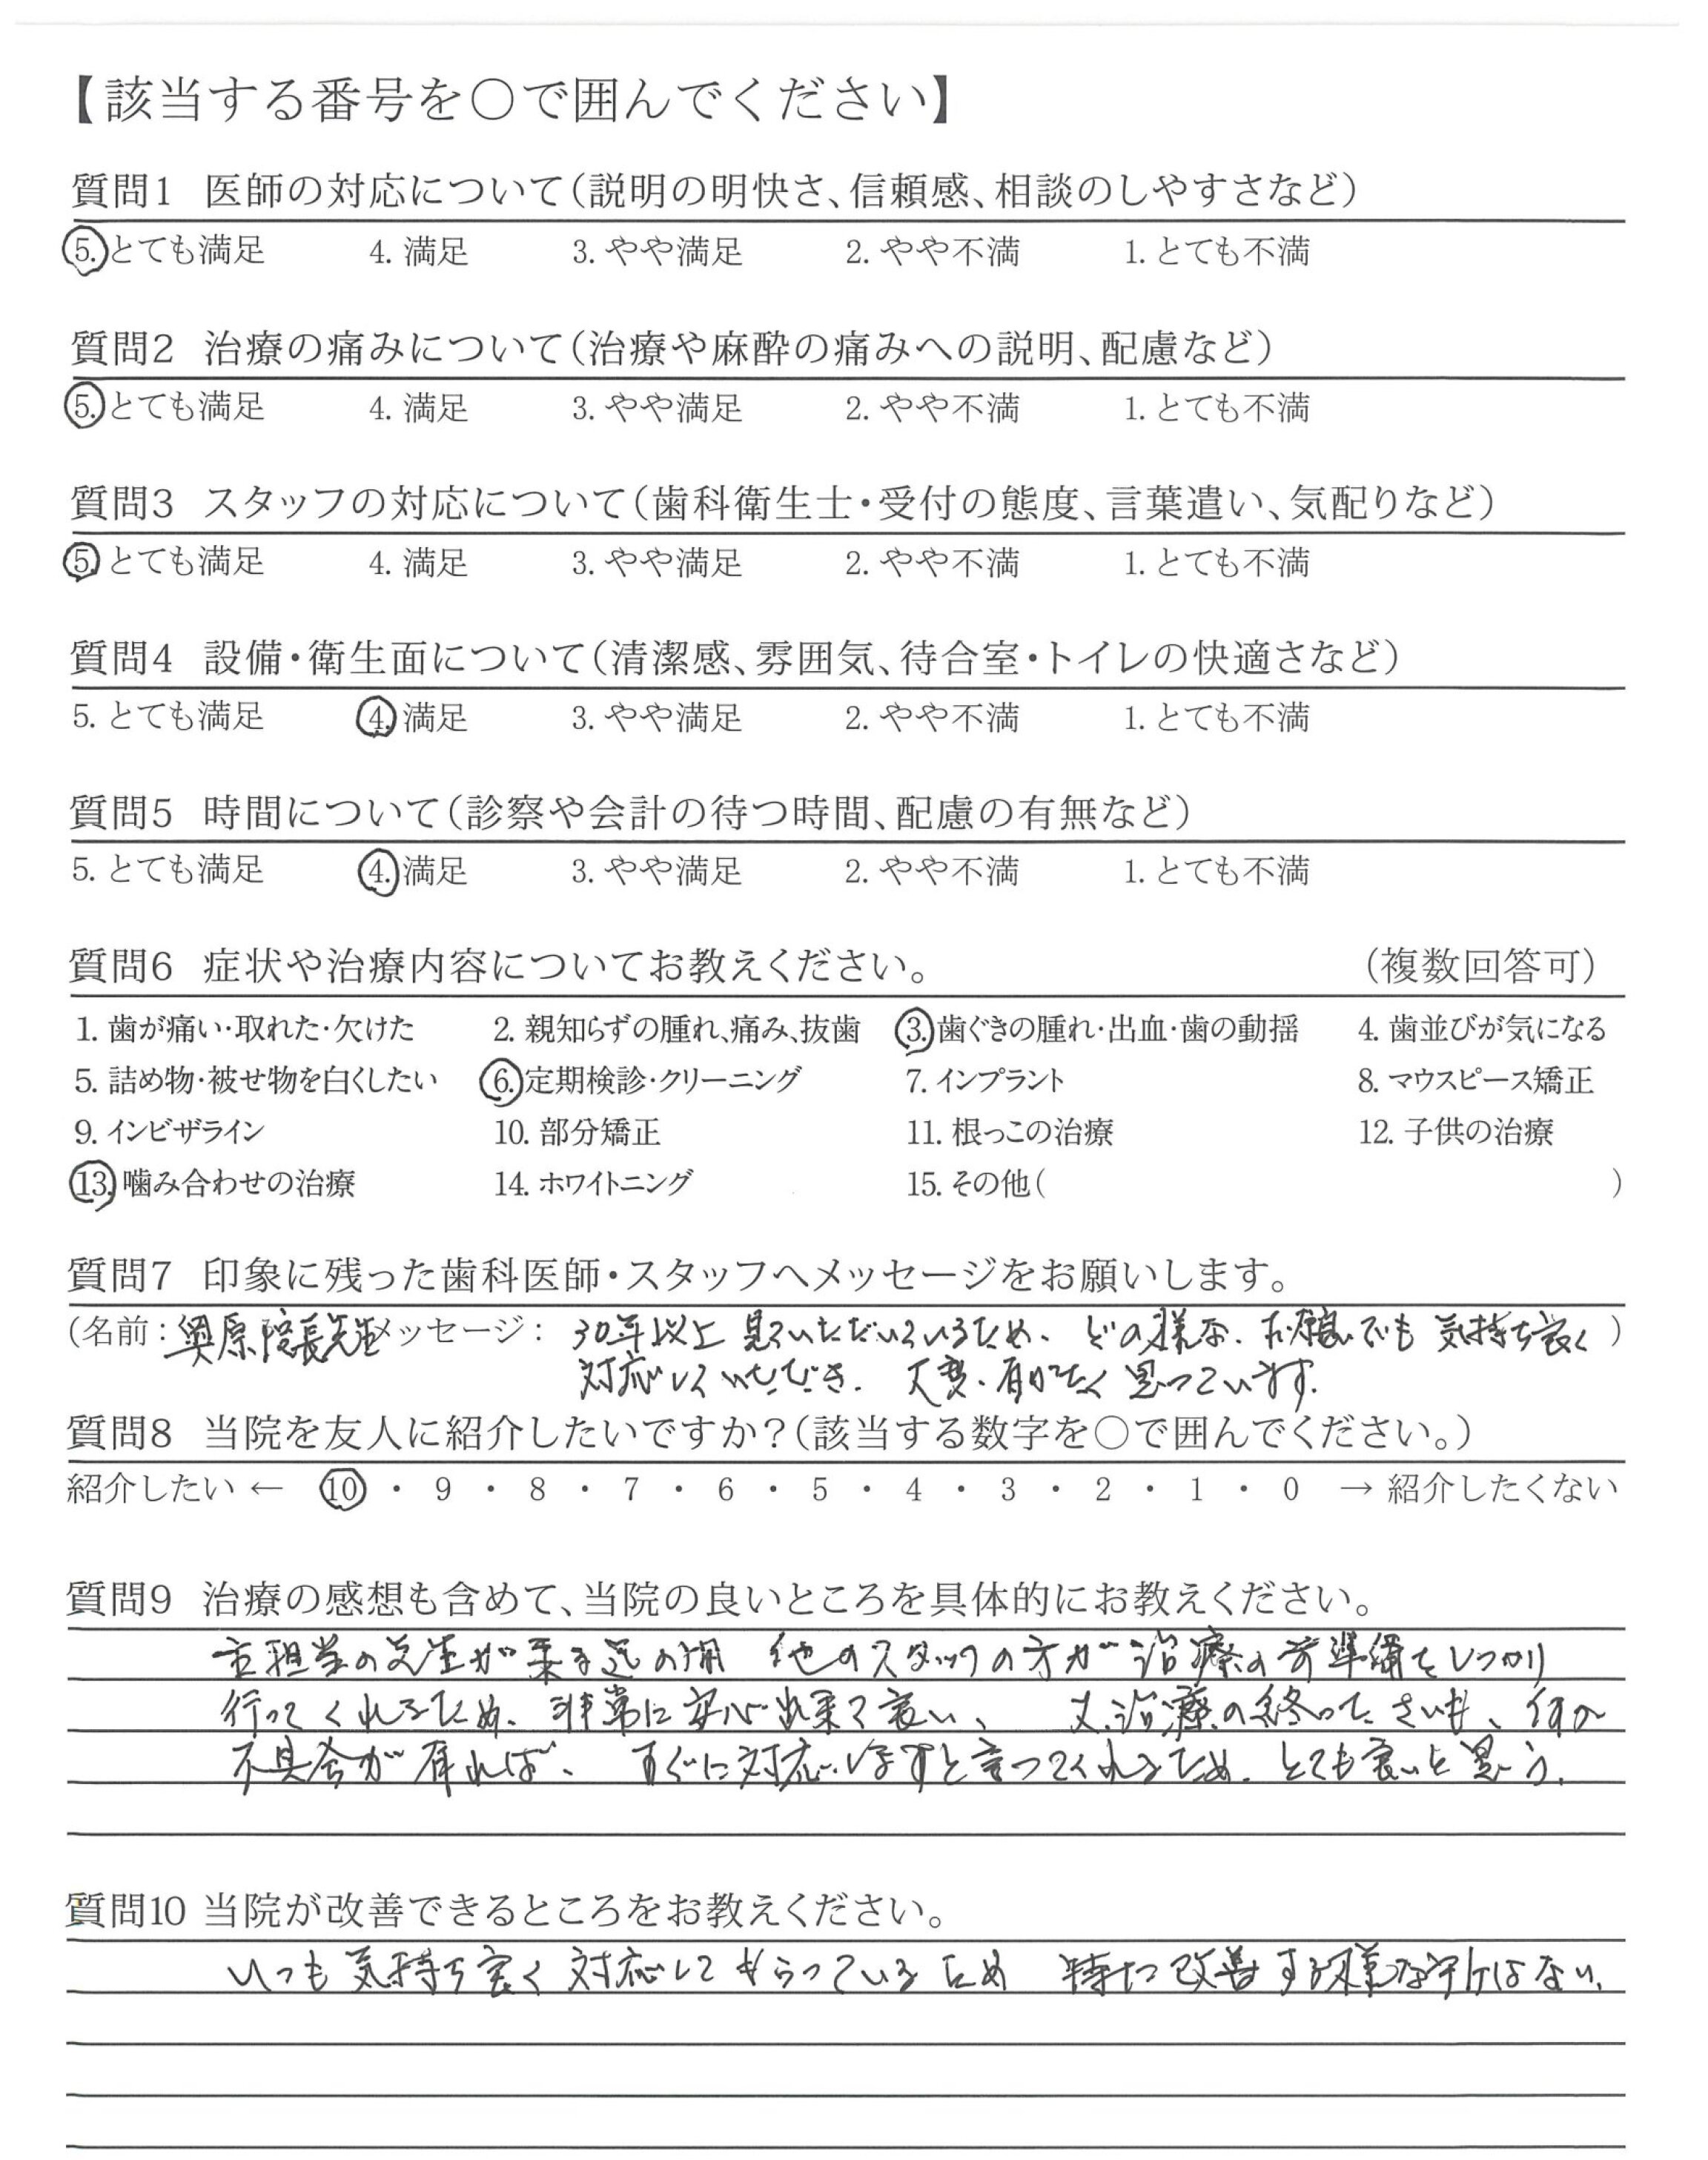 【該当する番号を〇で囲んでください】
質問1 医師の対応について(説明の明快さ、信頼感、相談のしやすさなど)
5. とても満足 4. 満足 3. やや満足 2. やや不満 1. とても不満
質問2 治療の痛みについて(治療や麻酔の痛みへの説明、配慮など)
5. とても満足 4. 満足 3. やや満足 2. やや不満 1. とても不満
質問3 スタッフの対応について(歯科衛生士・受付の態度、言葉遣い、気配りなど)
5. とても満足 4. 満足 3. やや満足 2. やや不満 1. とても不満
質問4 設備・衛生面について(清潔感、雰囲気、待合室・トイレの快適さなど)
5. とても満足 4. 満足 3. やや満足 2. やや不満 1. とても不満
質問5 時間について(診察や会計の待つ時間、配慮の有無など)
5. とても満足 4. 満足 3. やや満足 2. やや不満 1. とても不満
質問6 症状や治療内容についてお教えください。 (複数回答可)
1. 歯が痛い・取れた・欠けた 2. 親知らずの腫れ、痛み、抜歯 3. 歯ぐきの腫れ・出血・歯の動揺 4. 歯並びが気になる
5. 詰め物・被せ物を白くしたい 6. 定期検診・クリーニング 7. インプラント 8. マウスピース矯正
9. インビザライン 10. 部分矯正 11. 根っこの治療 12. 子供の治療
13. 噛み合わせの治療 14. ホワイトニング 15. その他( )
質問7 印象に残った歯科医師・スタッフへメッセージをお願いします。
(名前：奥原院長先生 メッセージ： 30年以上 見ていただいているため、どの様な、お願いでも 気持ち良く )
対応していただき、大変、有がたく 思っています。
質問8 当院を友人に紹介したいですか？(該当する数字を〇で囲んでください。)
紹介したい ← 10 ・ 9 ・ 8 ・ 7 ・ 6 ・ 5 ・ 4 ・ 3 ・ 2 ・ 1 ・ 0 → 紹介したくない
質問9 治療の感想も含めて、当院の良いところを具体的にお教えください。
主担当の先生が来る迄の間 他のスタッフの方が 治療の前準備をしっかり
行ってくれるため、非常に安心出来て良い、 又、治療の終った さいも、何か
不具合が有れば、 すぐに対応しますと言ってくれるため、とても良いと思う。
質問10 当院が改善できるところをお教えください。
いつも 気持ち良く 対応して もらっているため 特に 改善する様な はない。